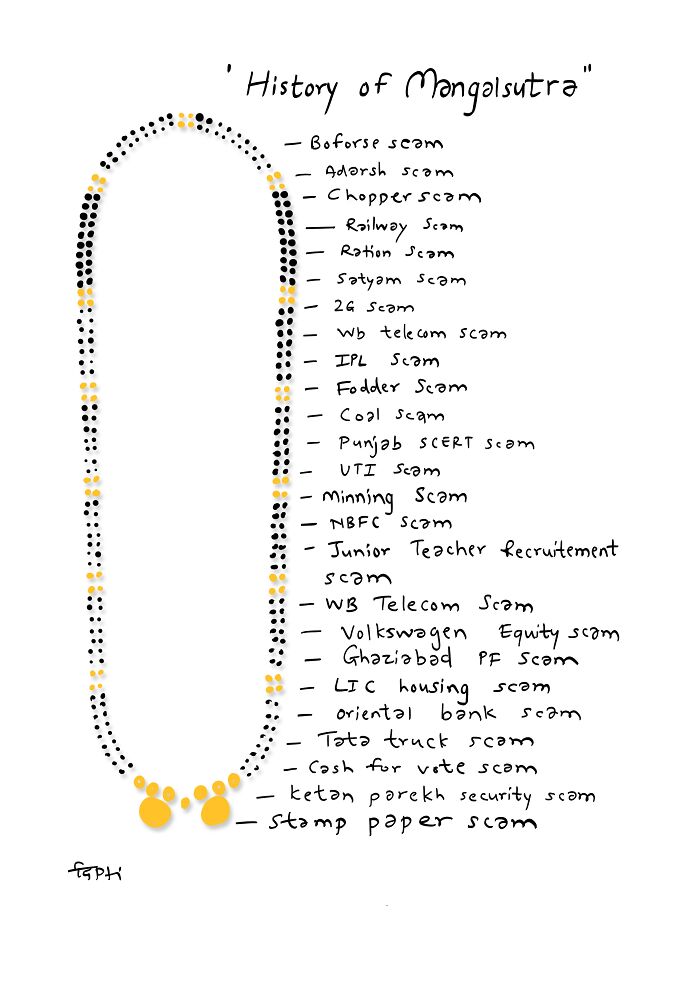 ' History of Mangalsutra"
— Boforse scam
— Adarsh scam
— Chopper scam
— Railway Scam
— Ration Scam
— Satyam scam
— 2G scam
— Wb telecom scam
— IPL Scam
— Fodder Scam
— Coal scam
— Punjab SCERT scam
— UTI Scam
— Minning Scam
— NBFC Scam
— Junior Teacher Recruitement
scam
— WB Telecom Scam
— Volkswagen Equity scam
— Ghaziabad PF Scam
— LIC housing scam
— oriental bank scam
— Tata truck scam
— Cash for vote scam
— ketan parekh security scam
— Stamp paper scam